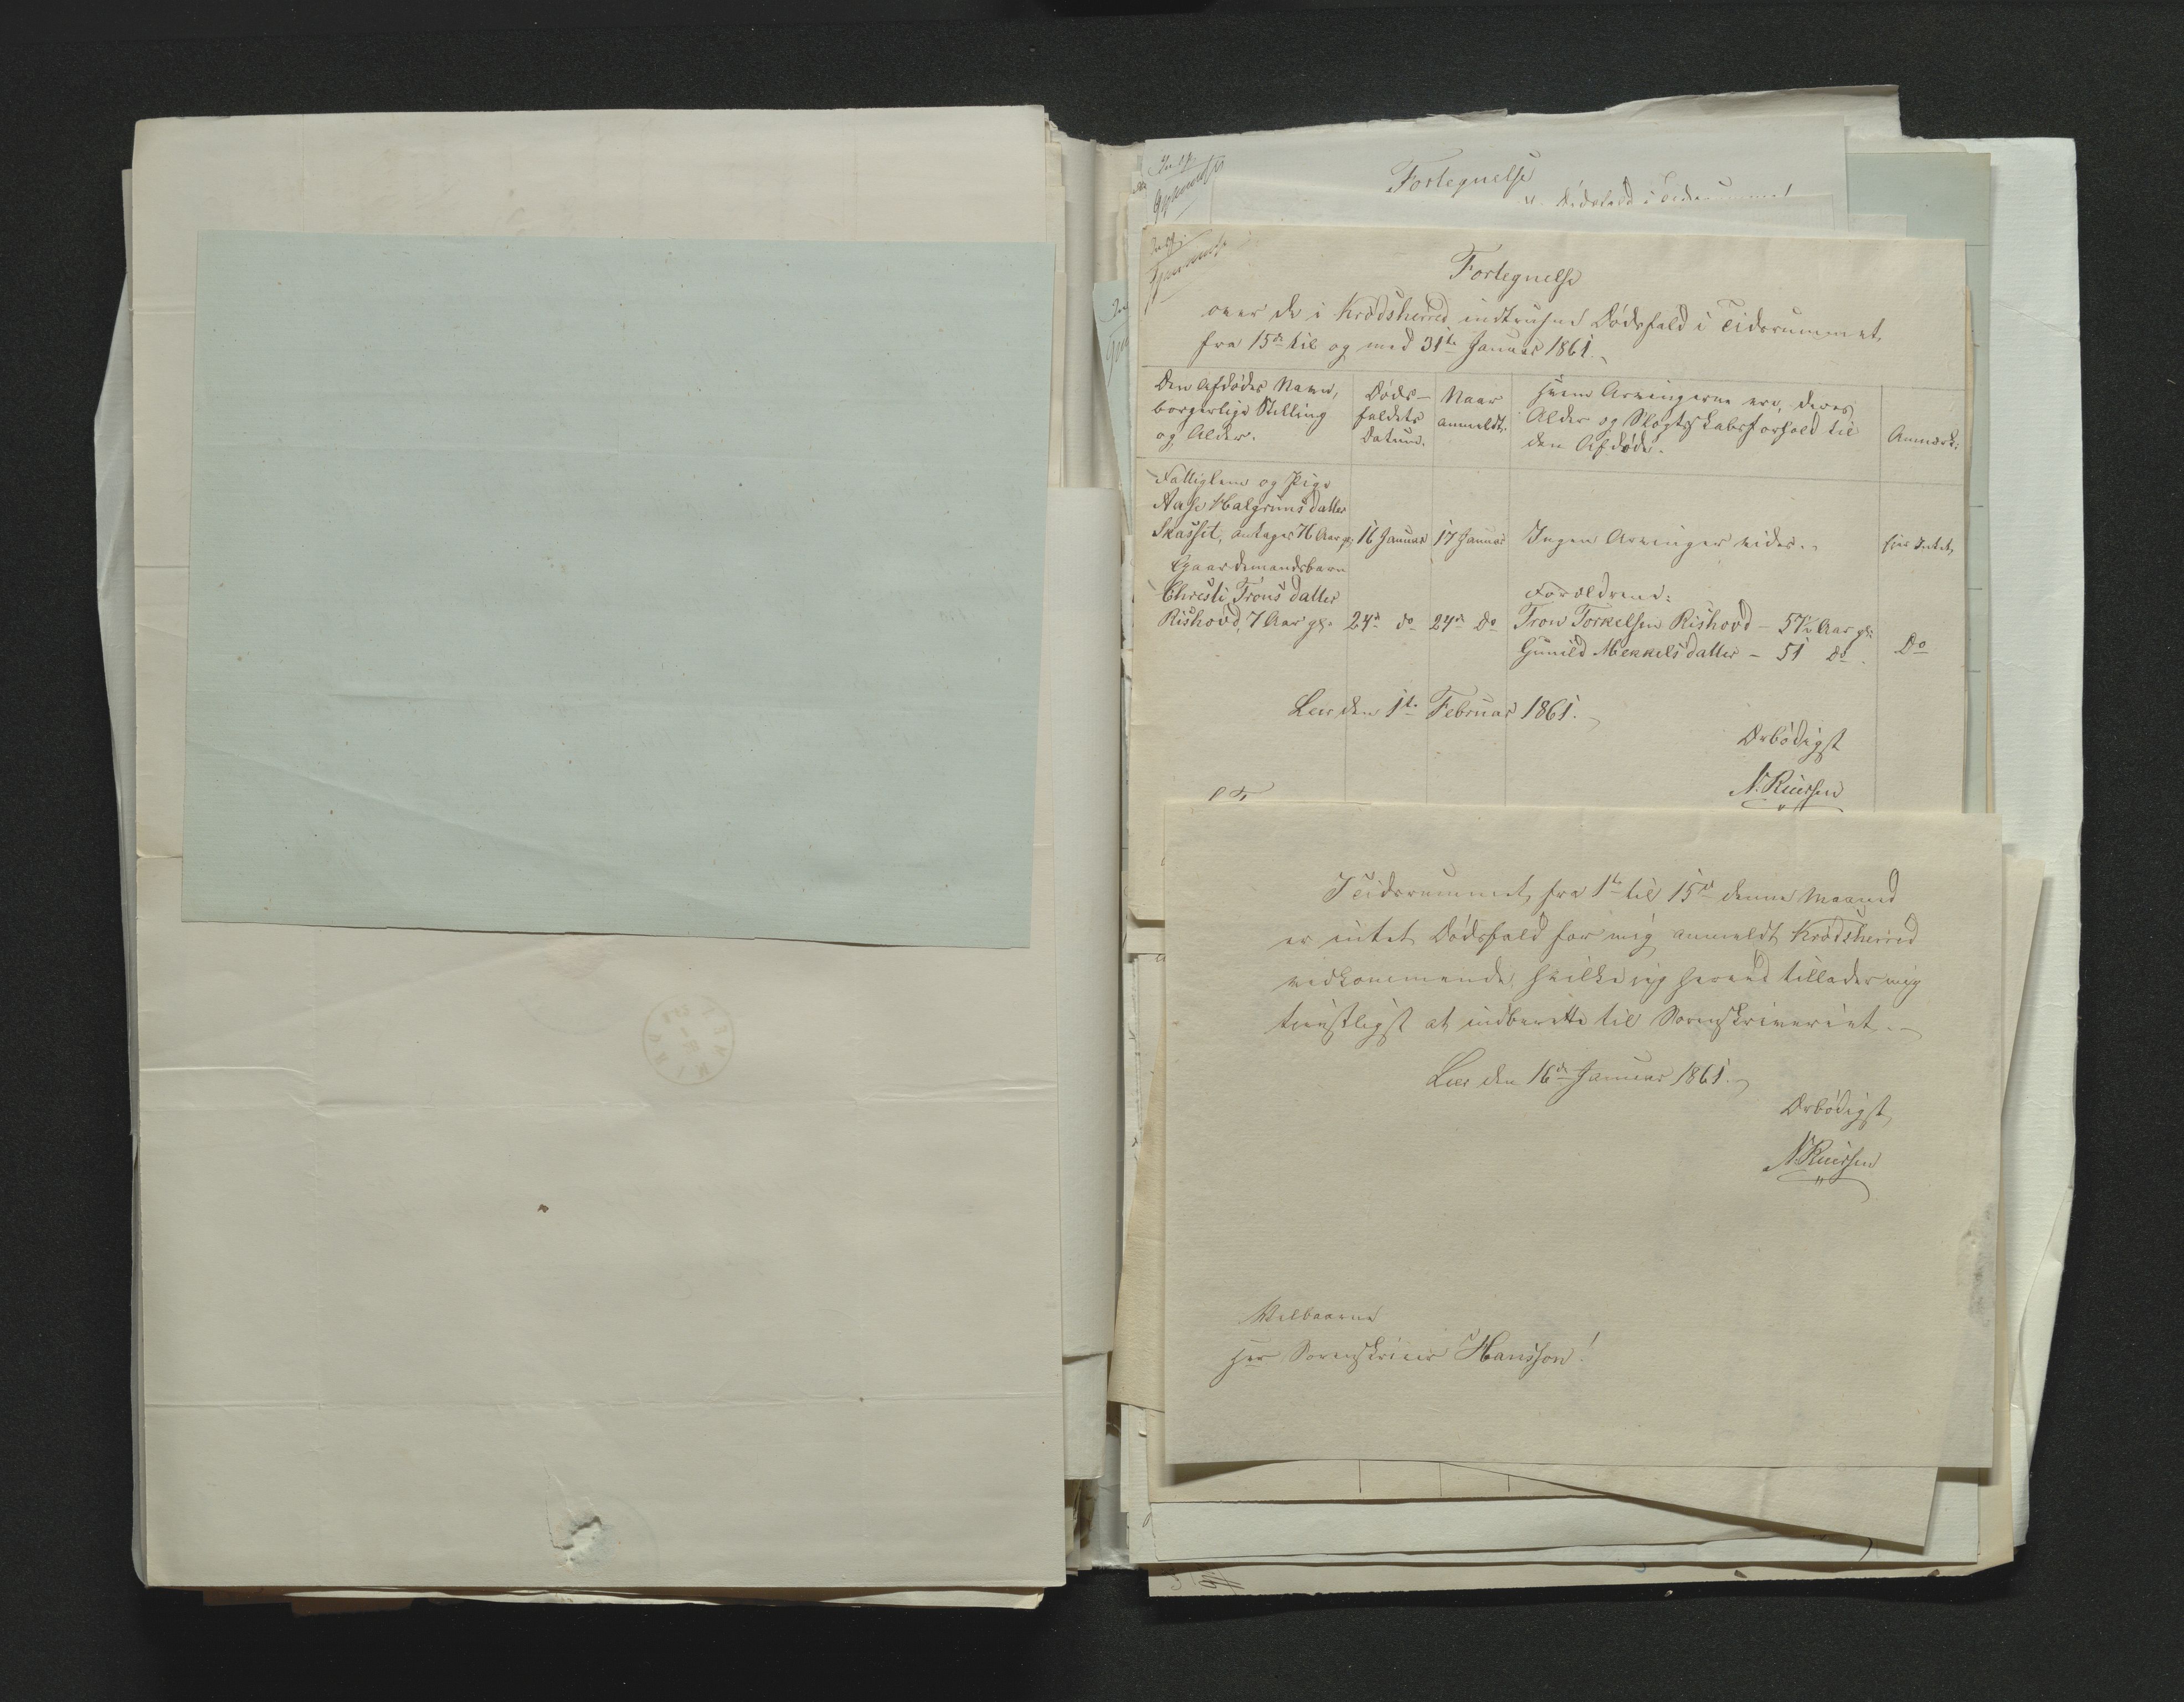 Fortegnelse
Fortegnelse
over de i Krødsherred indtrufne Dødsfald i Tidsrummet
fra 15de til og med 31te Januar 1861.
Den Afdødes Navn,
borgerlige Stilling
og Alder.
Døds-
faldets
Datum.
Naar
anmeldt.
Hvem Arvingerne ere, deres
Alder og Slægtskabsforhold til
den Afdøde.
Anmærk:
Fattiglem og Pige
Aase Halgrimsdatter
Skasset, antages 76 Aar gl: 16 Januar 17 Januar Ingen Arvinger vides. eier Intet,
Gaardmandsbarn
Christi Tronsdatter Forældrene:
Rishovd, 7 Aar gl. 24de do 24de Do Tron Torkelsen Rishovd - 57½ Aar gl:
Gunild Mekkelsdatter - 51 do. Do
Lier den 1te Februar 1861.
Ærbødigst
N. Ruersen
I Tidsrummet fra 1te til 15de denne Maaned
er intet Dødsfald for mig anmeldt Krødsherred
vedkommende, hvilke jeg herved tillader mig
tienstligst at indberette til Sorenskriveriet.
Lier den 16de Januar 1861.
Ærbødigst,
N. Ruersen
Velbaarne
Herr Sorenskriver Hansson!